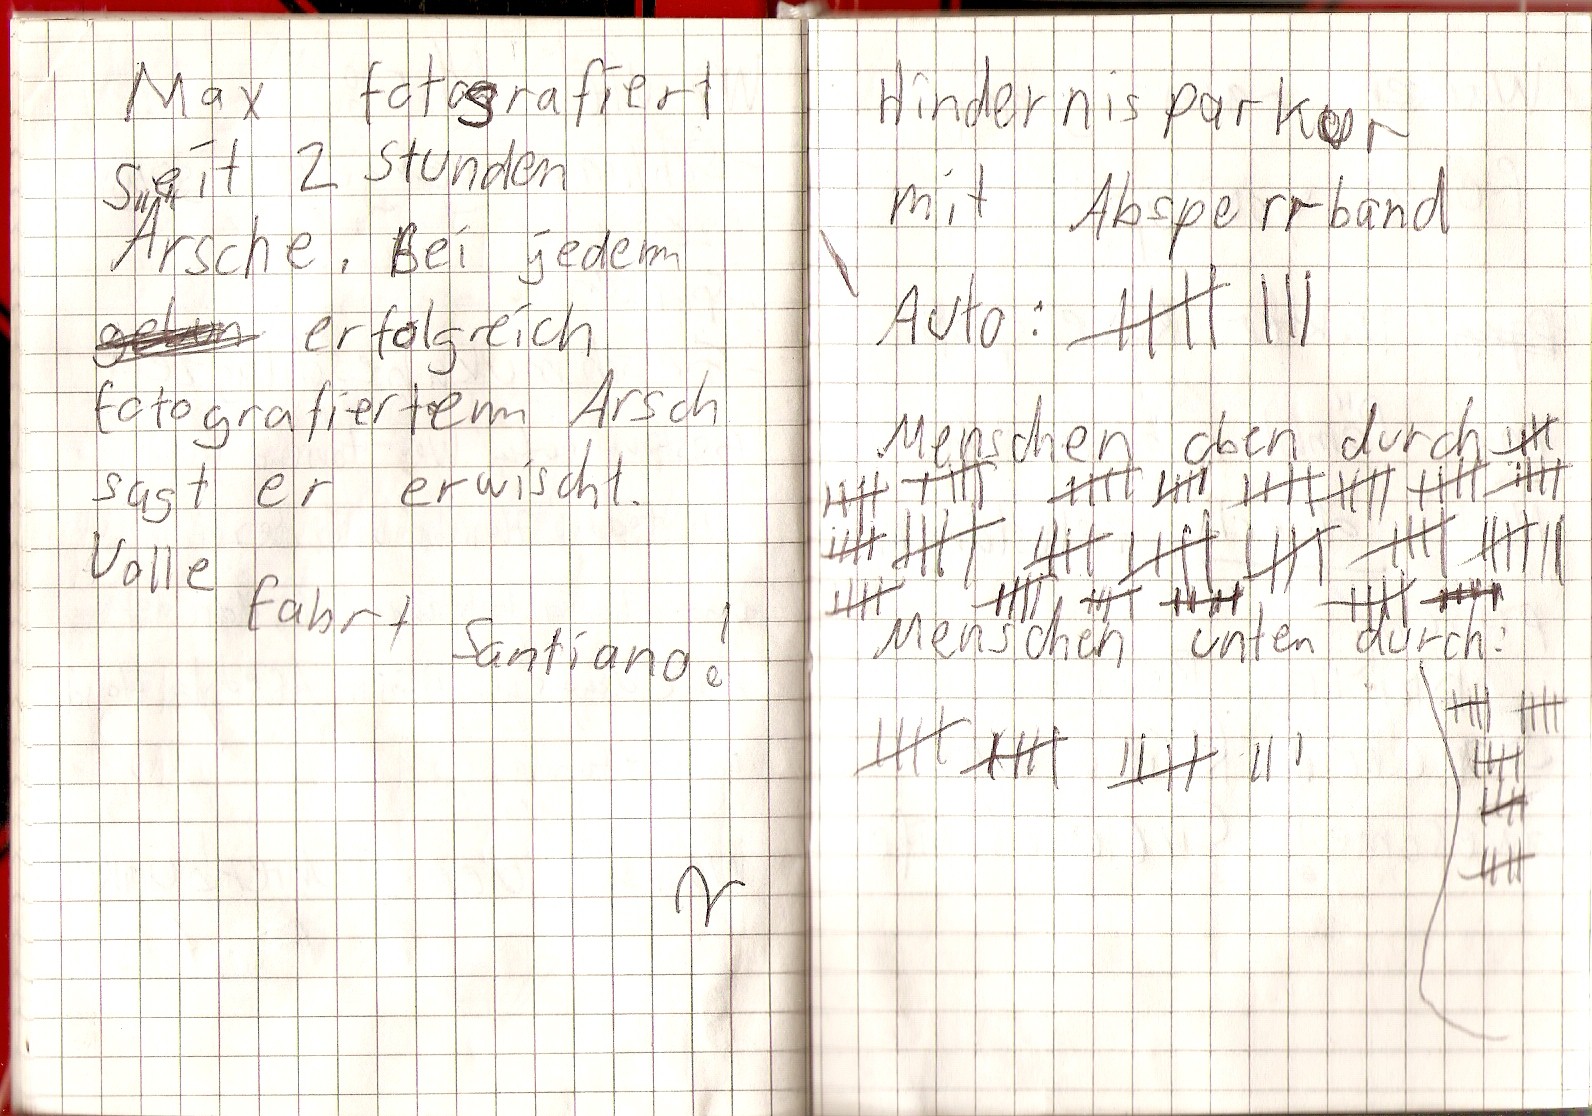 Max fotografiert
seit 2 Stunden
Ärsche. Bei jedem
erfolgreich
fotografiertem Arsch
sagt er erwischt.
Volle
fahrt
Santiano!
Hindernisparkour
mit Absperrband
Auto:
Menschen oben durch
Menschen unten durch: